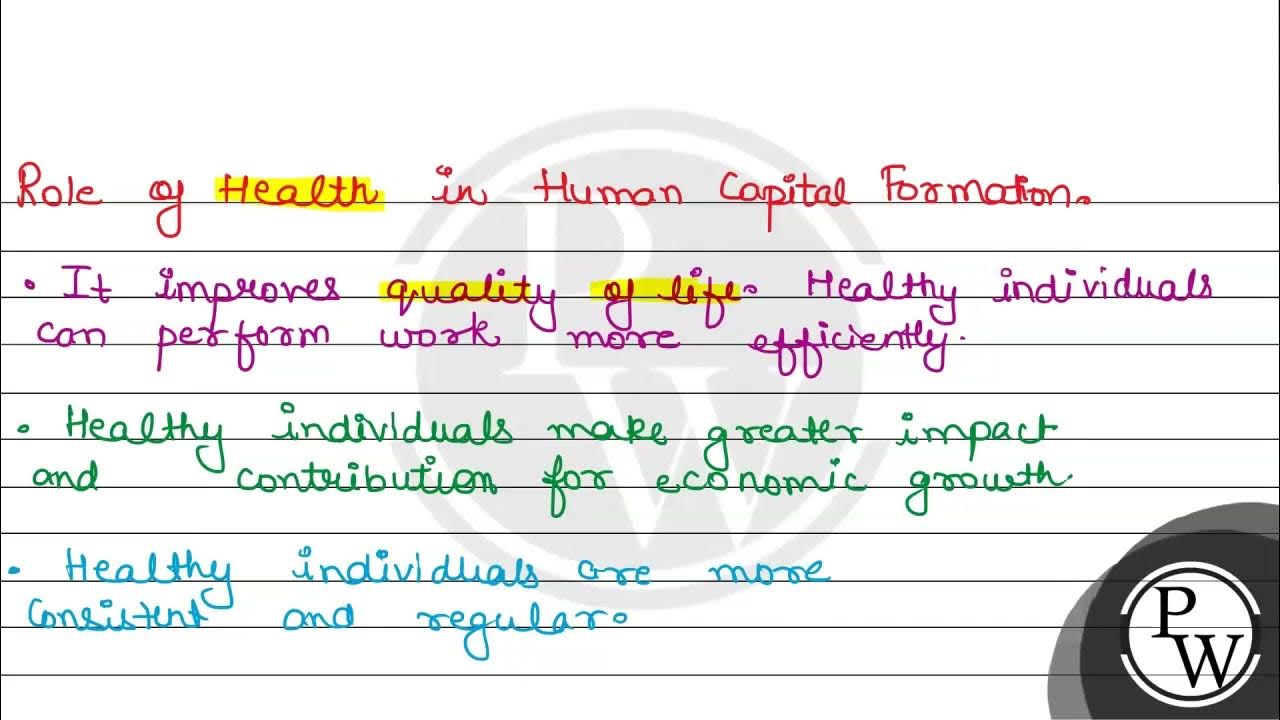 Role of Health in Human Capital Formation.
• It improves quality of life. Healthy individuals
can perform work more efficiently.
• Healthy individuals make greater impact
and contribution for economic growth.
• Healthy individuals are more
consistent and regular.
PW
PW